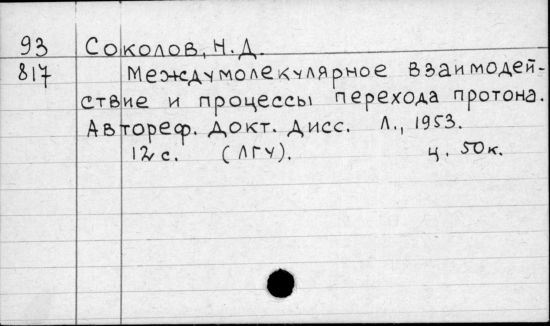 93 Соколов, Н.Д.
817 Междумолекулярное взаимодей-
ствие и процессы перехода протона.
Автореф. докт. дисс. Л., 1953.
12 с. (ЛГУ). ц. 50к.